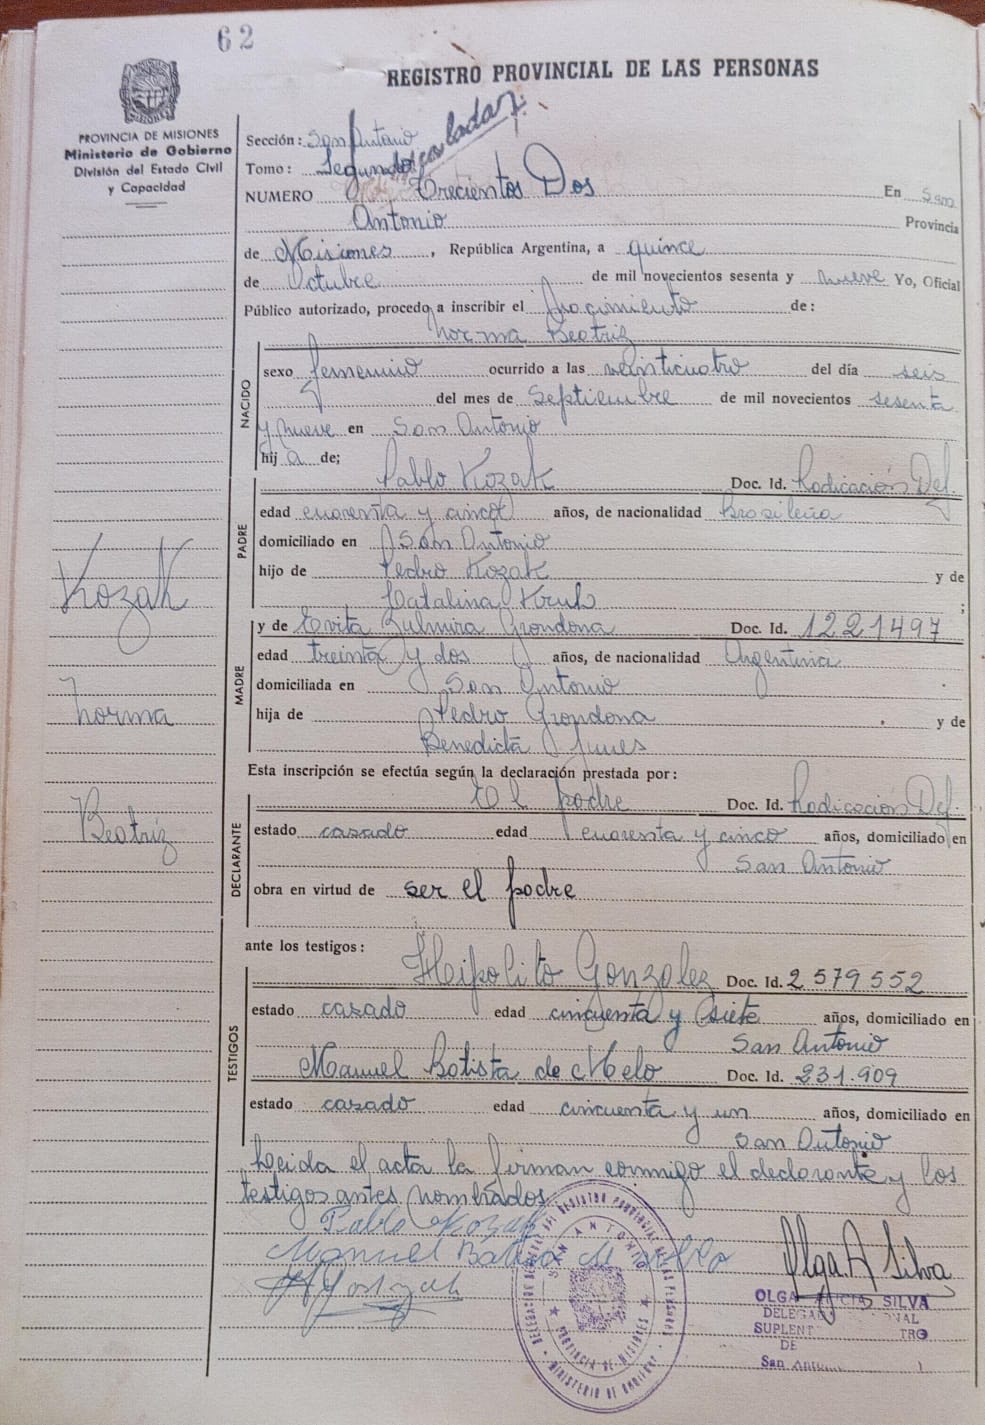 62
REGISTRO PROVINCIAL DE LAS PERSONAS
PROVINCIA DE MISIONES
Ministerio de Gobierno
División del Estado Civil
y Capacidad
Sección: San Antonio
Tomo: Segundo
NUMERO Trecientos Dos En San
Antonio Provincia
de Misiones, República Argentina, a quince
de Octubre de mil novecientos sesenta y nueve Yo, Oficial
Público autorizado, procedo a inscribir el Nacimiento de:
Norma Beatriz
NACIDO
sexo femenino ocurrido a las veinticuatro del día seis
del mes de Septiembre de mil novecientos sesenta
y nueve en San Antonio
hija de;
PADRE
Pablo Kozak Doc. Id. Radicación Def.
edad cuarenta y cinco años, de nacionalidad Brasileña
domiciliado en San Antonio
hijo de Pedro Kozak y de
Catalina ;
MADRE
y de Evita Zulmira Grondona Doc. Id. 1221497
edad treinta y dos años, de nacionalidad Argentina
domiciliada en San Antonio
hija de Pedro Grondona y de
Benedicta
Kozak
Norma
Beatriz
Esta inscripción se efectúa según la declaración prestada por:
DECLARANTE
El padre Doc. Id. Radicación Def.
estado casado edad cuarenta y cinco años, domiciliado en
San Antonio
obra en virtud de ser el padre
ante los testigos:
TESTIGOS
Heipolito Gonzalez Doc. Id. 2579552
estado casado edad cincuenta y siete años, domiciliado en
San Antonio
Manuel Batista de Melo Doc. Id. 231.909
estado casado edad cincuenta y un años, domiciliado en
San Antonio
Leida el acta la firman conmigo el declarante y los
testigos antes nombrados
Pablo Kozak
Manuel
Olga A Silva
OLGA ALICIA SILVA
SUPLENT
DE
San
SAN ANTONIO
PROVINCIA DE MISIONES